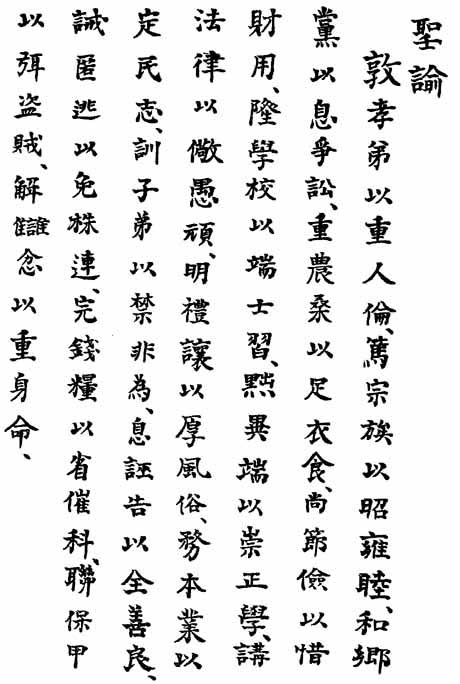 聖諭
敦孝弟以重人倫、篤宗族以昭雍睦、和鄉
黨以息爭訟、重農桑以足衣食、尚節儉以惜
財用、隆學校以端士習、黜異端以崇正學、講
法律以儆愚頑、明禮讓以厚風俗、務本業以
定民志、訓子弟以禁非為、息誣告以全善良、
誡匿逃以免株連、完錢糧以省催科、聯保甲
以弭盜賊、解讎忿以重身命、